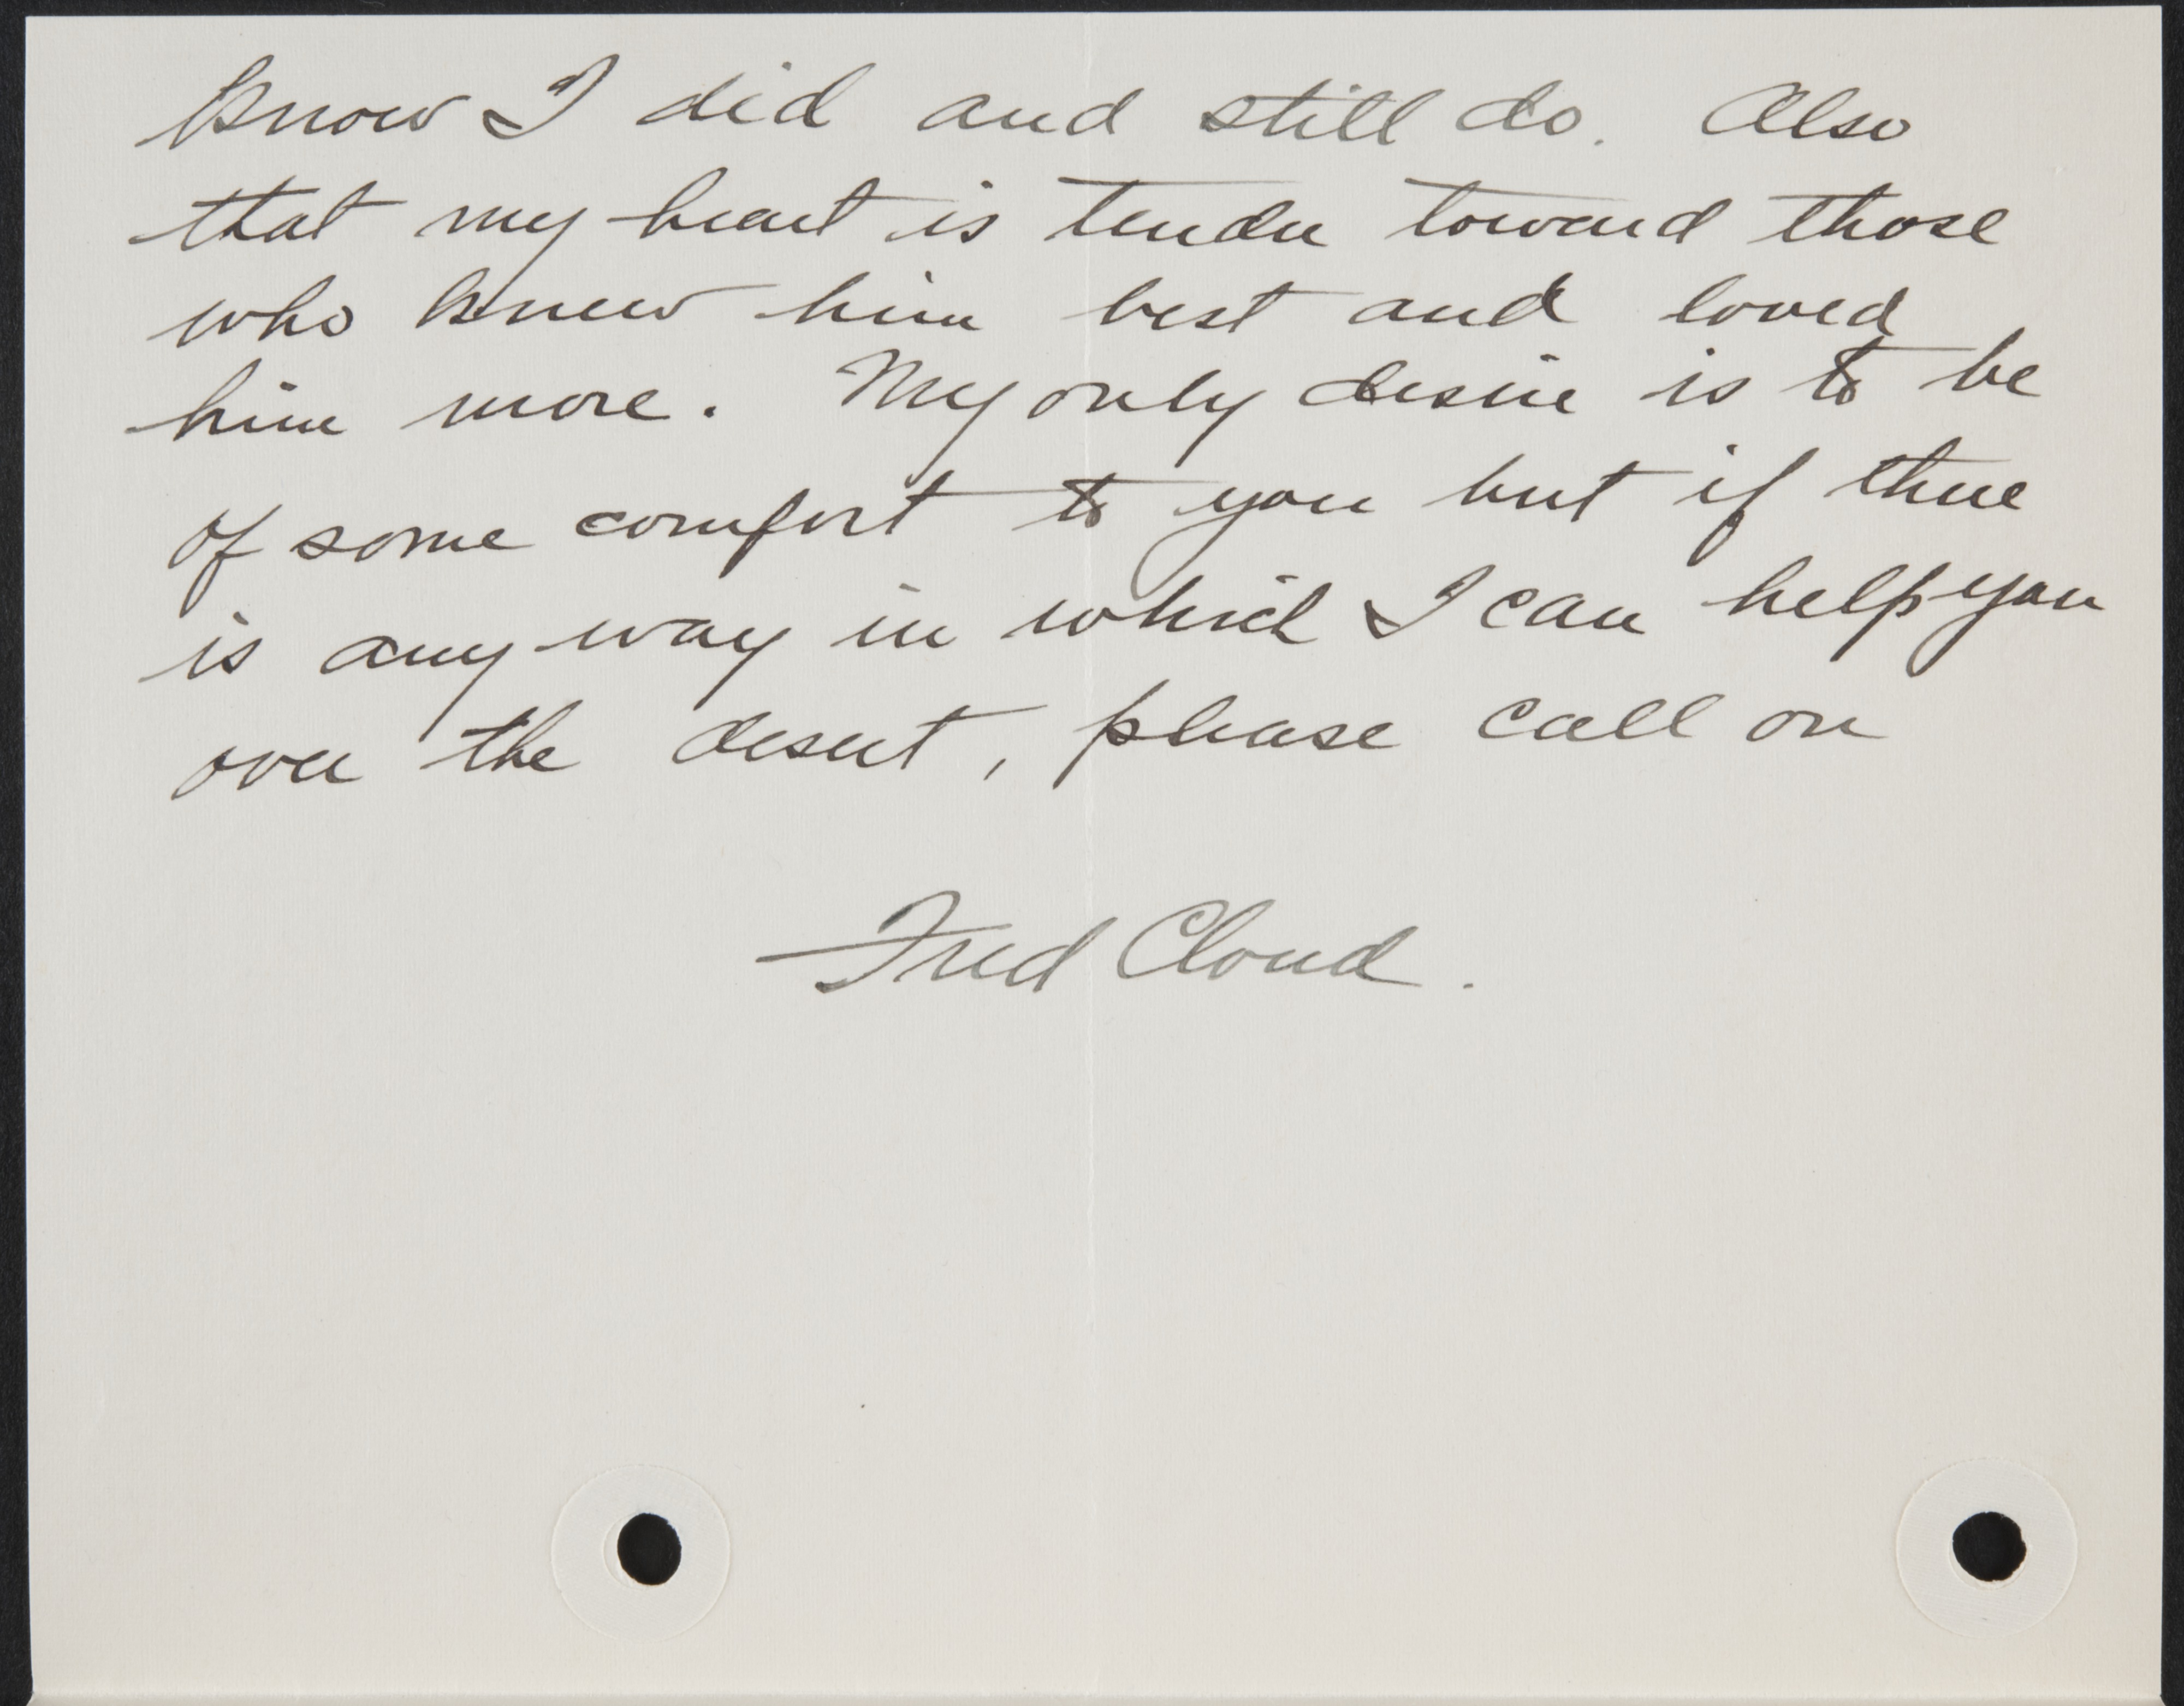 know I did and still do. Also
that my heart is tender toward those
who knew him best and loved
him more. My only desire is to be
of some comfort to you but if there
is any way in which I can help you
over the desert, please call on
Fred Cloud.